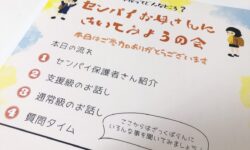 センパイお母さんに
きいてみようの会
本日はご参加ありがとうございます
本日の流れ
1 センパイ保護者さん紹介
2 支援級のお話し
3 通常級のお話し
4 質問タイム
ここからはざっくばらんに
いろんな事を聞いてみましょう